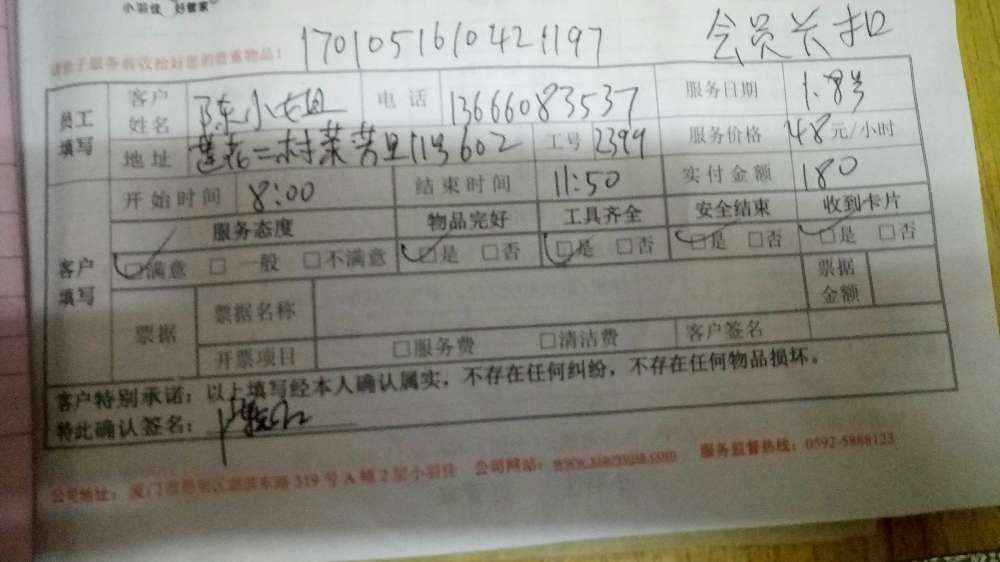 小羽佳 好管家
1701051610421197 会员卡扣
请您于服务前收拾好您的贵重物品！
员工填写 客户姓名 陈小姐 电话 13666083537 服务日期 1.8号
地址 莲花二村菜芳里11号602 工号 2399 服务价格 48元/小时
开始时间 8:00 结束时间 11:50 实付金额 180
客户填写 服务态度 物品完好 工具齐全 安全结束 收到卡片
□满意 □一般 □不满意 □是 □否 □是 □否 □是 □否 □是 □否
票据 票据名称 票据金额
开票项目 □服务费 □清洁费 客户签名
客户特别承诺：以上填写经本人确认属实，不存在任何纠纷，不存在任何物品损坏。
特此确认签名：
公司地址：厦门市思明区湖滨东路319号A幢2层小羽佳 公司网站：www.xiaoyujia.com 服务监督热线：0592-5888123